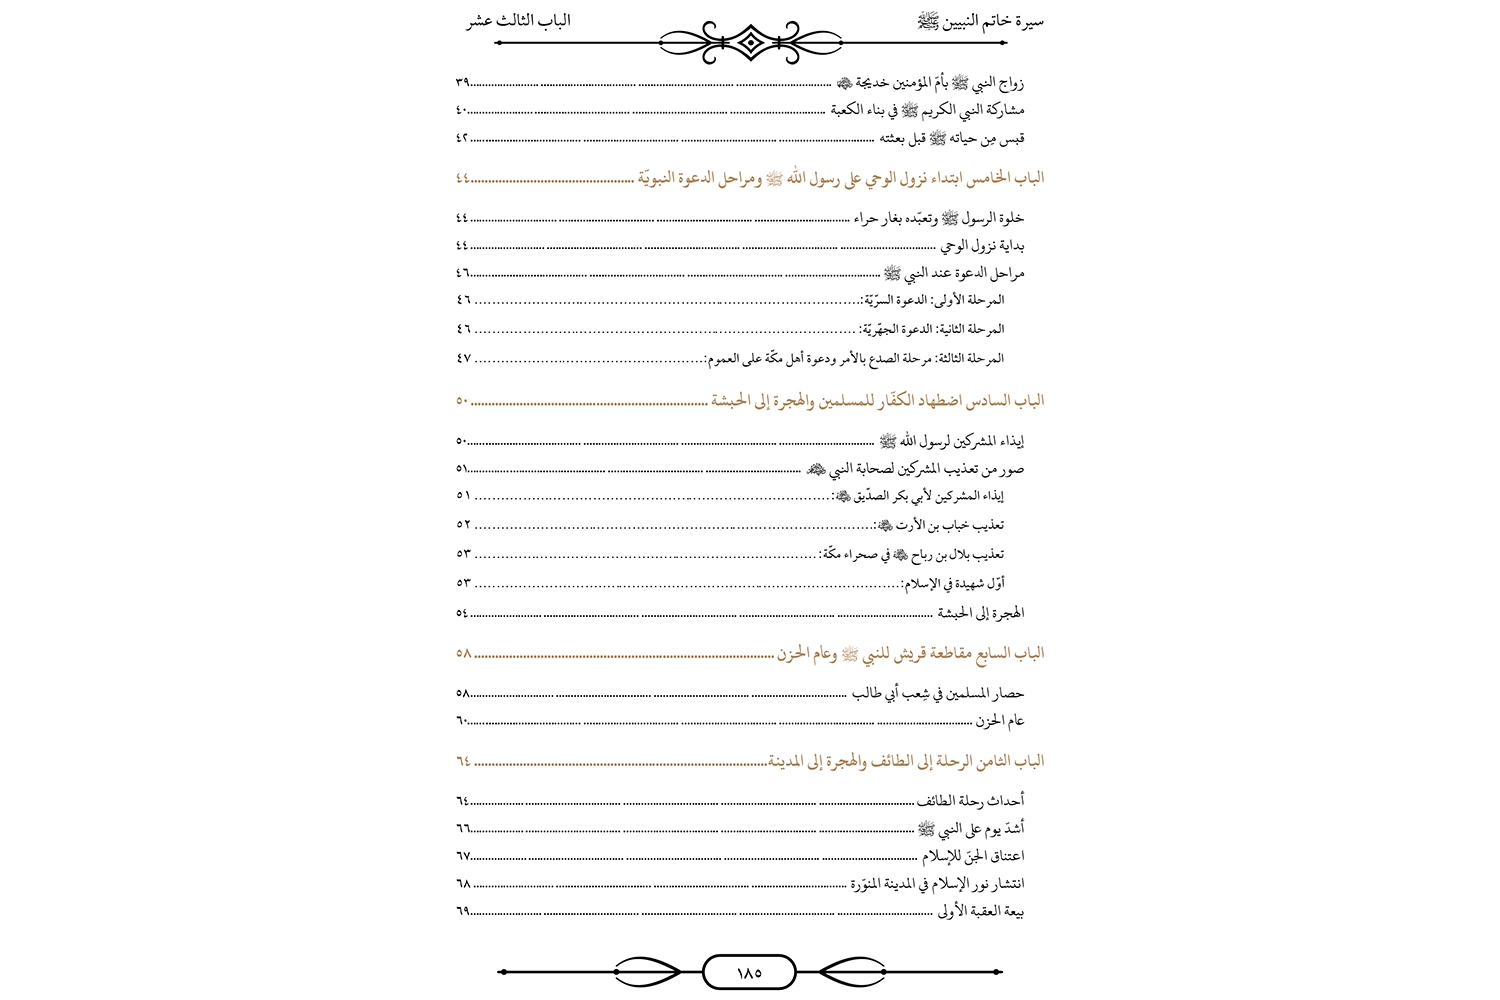 سيرة خاتم النبيين ﷺ
الباب الثالث عشر
زواج النبي ﷺ بأمّ المؤمنين خديجة ........ ٣٩
مشاركة النبي الكريم ﷺ في بناء الكعبة ........ ٤٠
قبس مِن حياته ﷺ قبل بعثته ........ ٤٢
الباب الخامس ابتداء نزول الوحي على رسول الله ﷺ ومراحل الدعوة النبويّة ........ ٤٤
خلوة الرسول ﷺ وتعبّده بغار حراء ........ ٤٤
بداية نزول الوحي ........ ٤٤
مراحل الدعوة عند النبي ﷺ ........ ٤٦
المرحلة الأولى: الدعوة السرّيّة: ........ ٤٦
المرحلة الثانية: الدعوة الجهّريّة: ........ ٤٦
المرحلة الثالثة: مرحلة الصدع بالأمر ودعوة أهل مكّة على العموم: ........ ٤٧
الباب السادس اضطهاد الكفّار للمسلمين والهجرة إلى الحبشة ........ ٥٠
إيذاء المشركين لرسول الله ﷺ ........ ٥٠
صور من تعذيب المشركين لصحابة النبي ........ ٥١
إيذاء المشركين لأبي بكر الصدّيق : ........ ٥١
تعذيب خباب بن الأرت : ........ ٥٢
تعذيب بلال بن رباح في صحراء مكّة: ........ ٥٣
أوّل شهيدة في الإسلام: ........ ٥٣
الهجرة إلى الحبشة ........ ٥٤
الباب السابع مقاطعة قريش للنبي ﷺ وعام الحزن ........ ٥٨
حصار المسلمين في شِعب أبي طالب ........ ٥٨
عام الحزن ........ ٦٠
الباب الثامن الرحلة إلى الطائف والهجرة إلى المدينة ........ ٦٤
أحداث رحلة الطائف ........ ٦٤
أشدّ يوم على النبي ﷺ ........ ٦٦
اعتناق الجنّ للإسلام ........ ٦٧
انتشار نور الإسلام في المدينة المنوّرة ........ ٦٨
بيعة العقبة الأولى ........ ٦٩
١٨٥